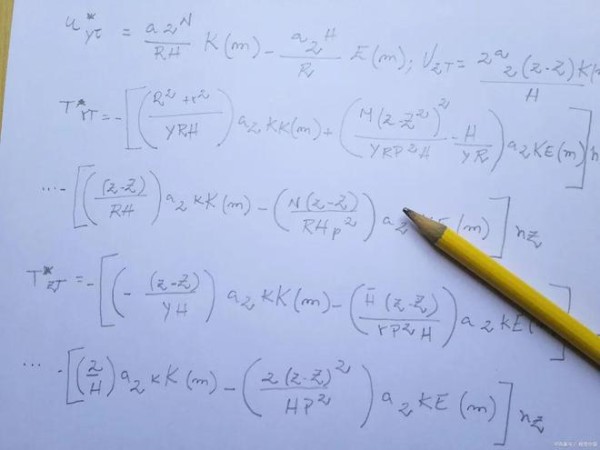 u*γτ = a2N/RH K(m) - a2H/R E(m); UZT = 2a2(z-Z)K(
H
T*γT = -[((R²+r²)/YRH) a2 KK(m) + (M(z-Z²)²/YRP²H - H/YR) a2 KE(m)] n
...-[((z-Z)/RH) a2 KK(m) - (N(z-Z)/RHp²) a2 KE(m)] nZ
T*ZT = -[(-(z-Z)/YH) a2 KK(m) - (H̄(z-Z)/rP²H) a2 KE(
... -[(2/H) a2 KK(m) - (2(z-Z)²/HP²) a2 KE(m)] nZ